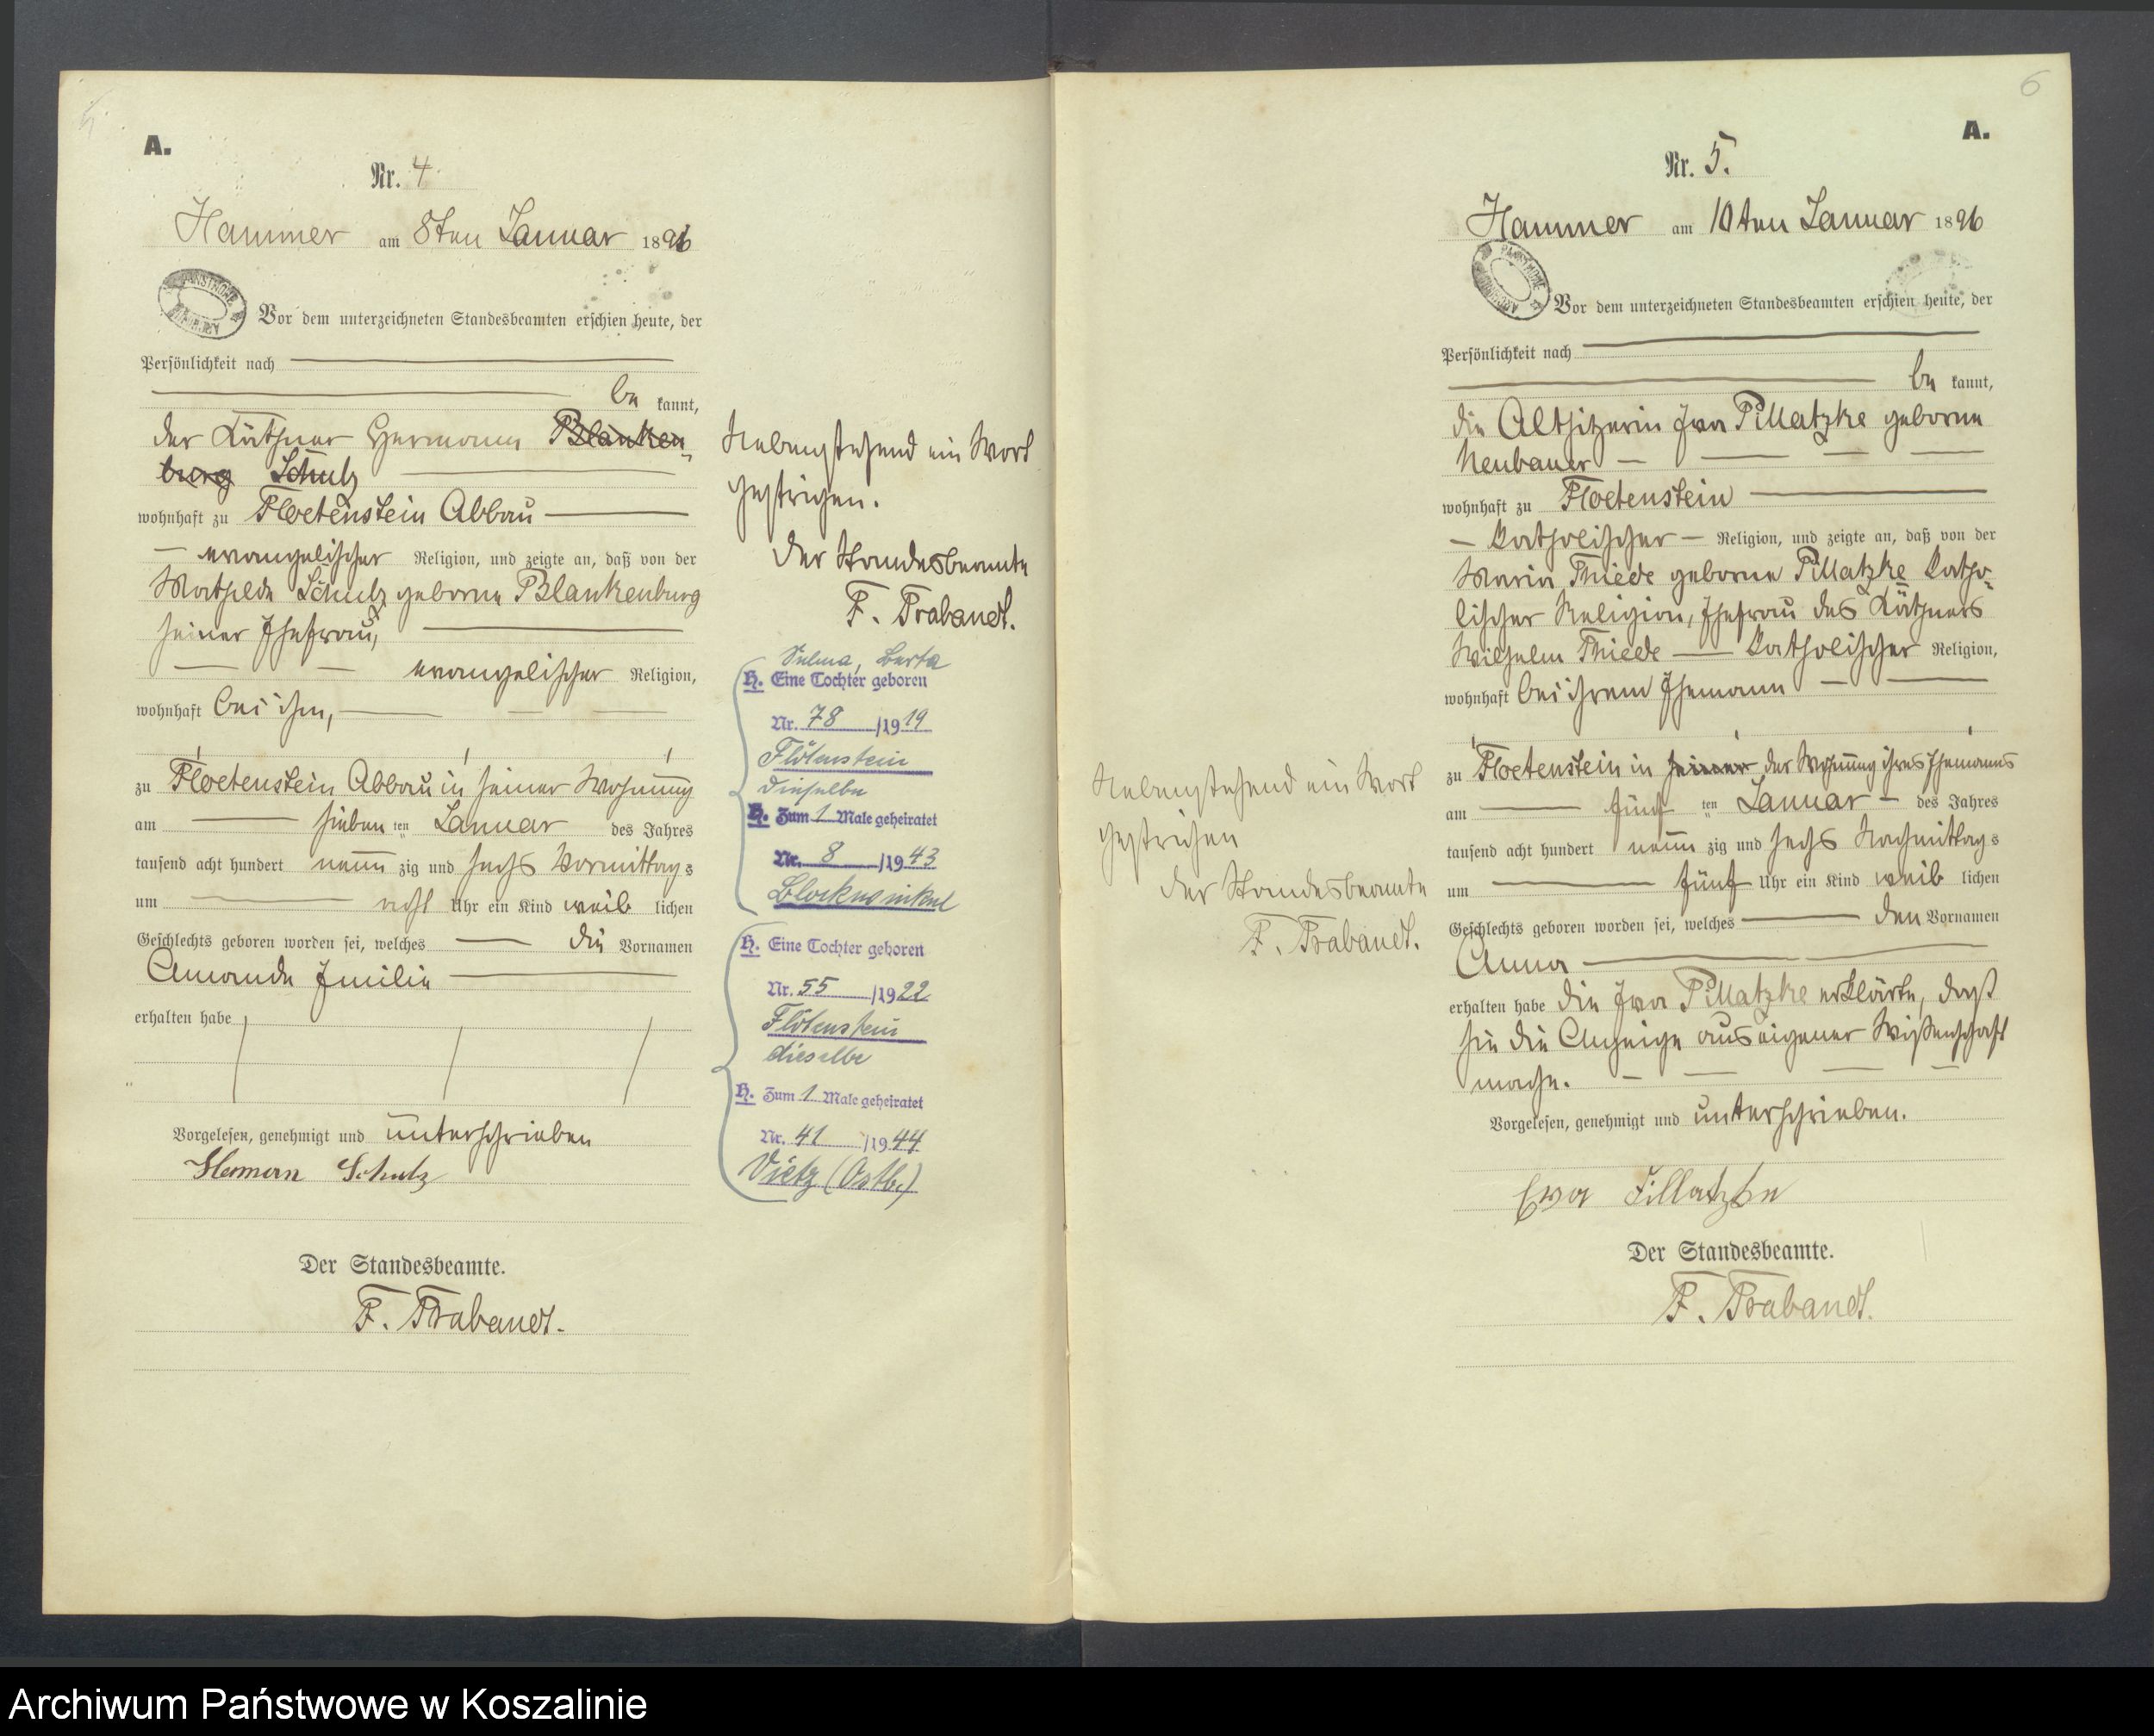 5
A.
Nr. 4
Hammer am 8ten Januar 1896
Vor dem unterzeichneten Standesbeamten erschien heute, der
Persönlichkeit nach
be kannt,
der Käthner Hermann Blanken-
burg Schulz
wohnhaft zu Floetenstein Abbau
evangelischer Religion, und zeigte an, daß von der
Mathilde Schulz geborne Blankenburg
seiner Ehefrau,
evangelischer Religion,
wohnhaft bei ihm,
zu Floetenstein Abbau in seiner Wohnung
am sieben ten Januar des Jahres
tausend acht hundert neun zig und sechs Vormittags
um acht Uhr ein Kind weib lichen
Geschlechts geboren worden sei, welches die Vornamen
Amande Emilie
erhalten habe
Vorgelesen, genehmigt und unterschrieben
Hermann Schulz
Der Standesbeamte.
F. Trabandt.
Nebenstehend ein Wort
gestrichen.
Der Standesbeamte
F. Trabandt.
Selma, Berta
H. Eine Tochter geboren
Nr. 78 /1919
Flötenstein
dieselbe
H. Zum 1 Male geheiratet
Nr. 8 /1943
Blockwinkel
H. Eine Tochter geboren
Nr. 55 /1922
Flötenstein
dieselbe
H. Zum 1 Male geheiratet
Nr. 41 /1944
Vietz (Ostb.)
6
A.
Nr. 5.
Hammer am 10ten Januar 1896
Vor dem unterzeichneten Standesbeamten erschien heute, der
Persönlichkeit nach
be kannt,
die Altsitzerin Eva Pillatzke geborne
Neubauer
wohnhaft zu Floetenstein
katholischer Religion, und zeigte an, daß von der
Maria Thiede geborne Pillatzke katho-
lischer Religion, Ehefrau des Käthners
Wilhelm Thiede katholischer Religion,
wohnhaft bei ihrem Ehemann
zu Floetenstein in seiner der Wohnung ihres Ehemannes
am fünf ten Januar des Jahres
tausend acht hundert neun zig und sechs Nachmittags
um fünf Uhr ein Kind weib lichen
Geschlechts geboren worden sei, welches den Vornamen
Anna
erhalten habe die Eva Pillatzke erklärte, daß
sie die Anzeige aus eigener Wißenschaft
mache.
Vorgelesen, genehmigt und unterschrieben.
Ewa Pillatzke
Der Standesbeamte.
F. Trabandt.
Nebenstehend ein Wort
gestrichen
Der Standesbeamte
F. Trabandt.
Archiwum Państwowe w Koszalinie